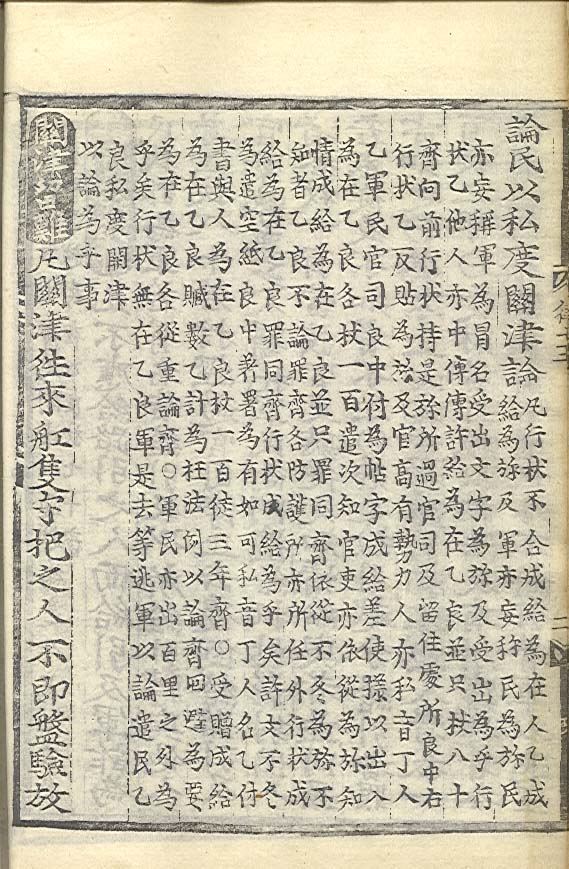 論民以私度關津論凡行狀不合成給為在人乙成
給為旀及軍亦妄稱民為旀民
亦妄稱軍為冒名受出文字為旀及受出為乎行
狀乙他人亦中傳傳許給為在乙良並只杖八十
齊向前行狀持是旀所過官司及留住處所良中右
行狀乙反貼為旀及官高有勢力人亦私音丁人
乙軍民官司良中付為帖字成給差使樣以出入
為在乙良各杖一百遣次知官吏亦依從為旀知
情成給為在乙良並只罪同齊依從不冬為旀不
知者乙良不論罪齊各防護所亦所任外行狀成
給為在乙良罪同齊行狀成給為乎矣許文不冬
為遣空紙良中著署為有如可私音丁人名乙付
書與人為在乙良杖一百徒三年齊○受贈成給
為在乙良贓數乙計為枉法例以論齊回避為要
為在乙良各從重論齊○軍民亦出百里之外為
乎矣行狀無在乙良軍是去等逃軍以論遣民乙
良私度關津
以論為乎事
關津留難凡關津往來舡隻守把之人不即盤驗放